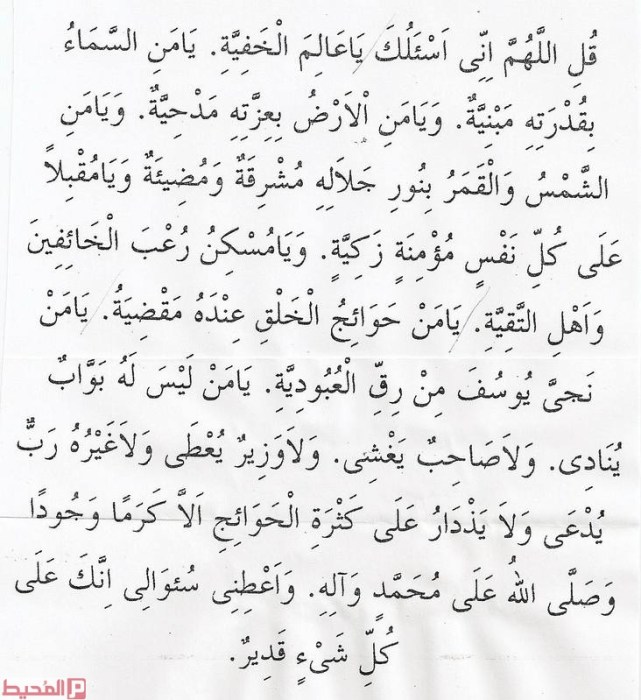 قُلِ اللَّهُمَّ اِنِّى اَسْئَلُكَ يَاعَالِمَ الْخَفِيَّةِ. يَامَنِ السَّمَاءُ
بِقُدْرَتِهِ مَبْنِيَّةٌ. وَيَامَنِ الْاَرْضُ بِعِزَّتِهِ مَدْحِيَّةٌ. وَيَامَنِ
الشَّمْسُ وَالْقَمَرُ بِنُورِ جَلَالِهِ مُشْرِقَةٌ وَمُضِيئَةٌ وَيَامُقْبِلاً
عَلَى كُلِّ نَفْسٍ مُؤْمِنَةٍ زَكِيَّةٍ. وَيَامُسْكِنُ رُعْبَ الْخَائِفِينَ
وَاَهْلِ التَّقِيَّةِ. يَامَنْ حَوَائِجُ الْخَلْقِ عِنْدَهُ مَقْضِيَةُ. يَامَنْ
نَجىَّ يُوسُفَ مِنْ رِقِّ الْعُبُودِيَّةِ. يَامَنْ لَيْسَ لَهُ بَوَّابٌ
يُنَادِى. وَلَاصَاحِبٌ يَغْشِى. وَلَاوَزِيرٌ يُعْطَى وَلَاغَيْرُهُ رَبٌّ
يُدْعَى وَلَا يَذْدَارُ عَلَى كَثْرَةِ الْحَوَائِجِ اَلاَّ كَرَمًا وَجُودًا
وَصَلَّى اللهُ عَلَى مُحَمَّدٍ وَآلِهِ. وَاَعْطِنِى سُئوَالِى اِنَّكَ عَلَى
كُلِّ شَىْءٍ قَدِيرٌ.
المحيط